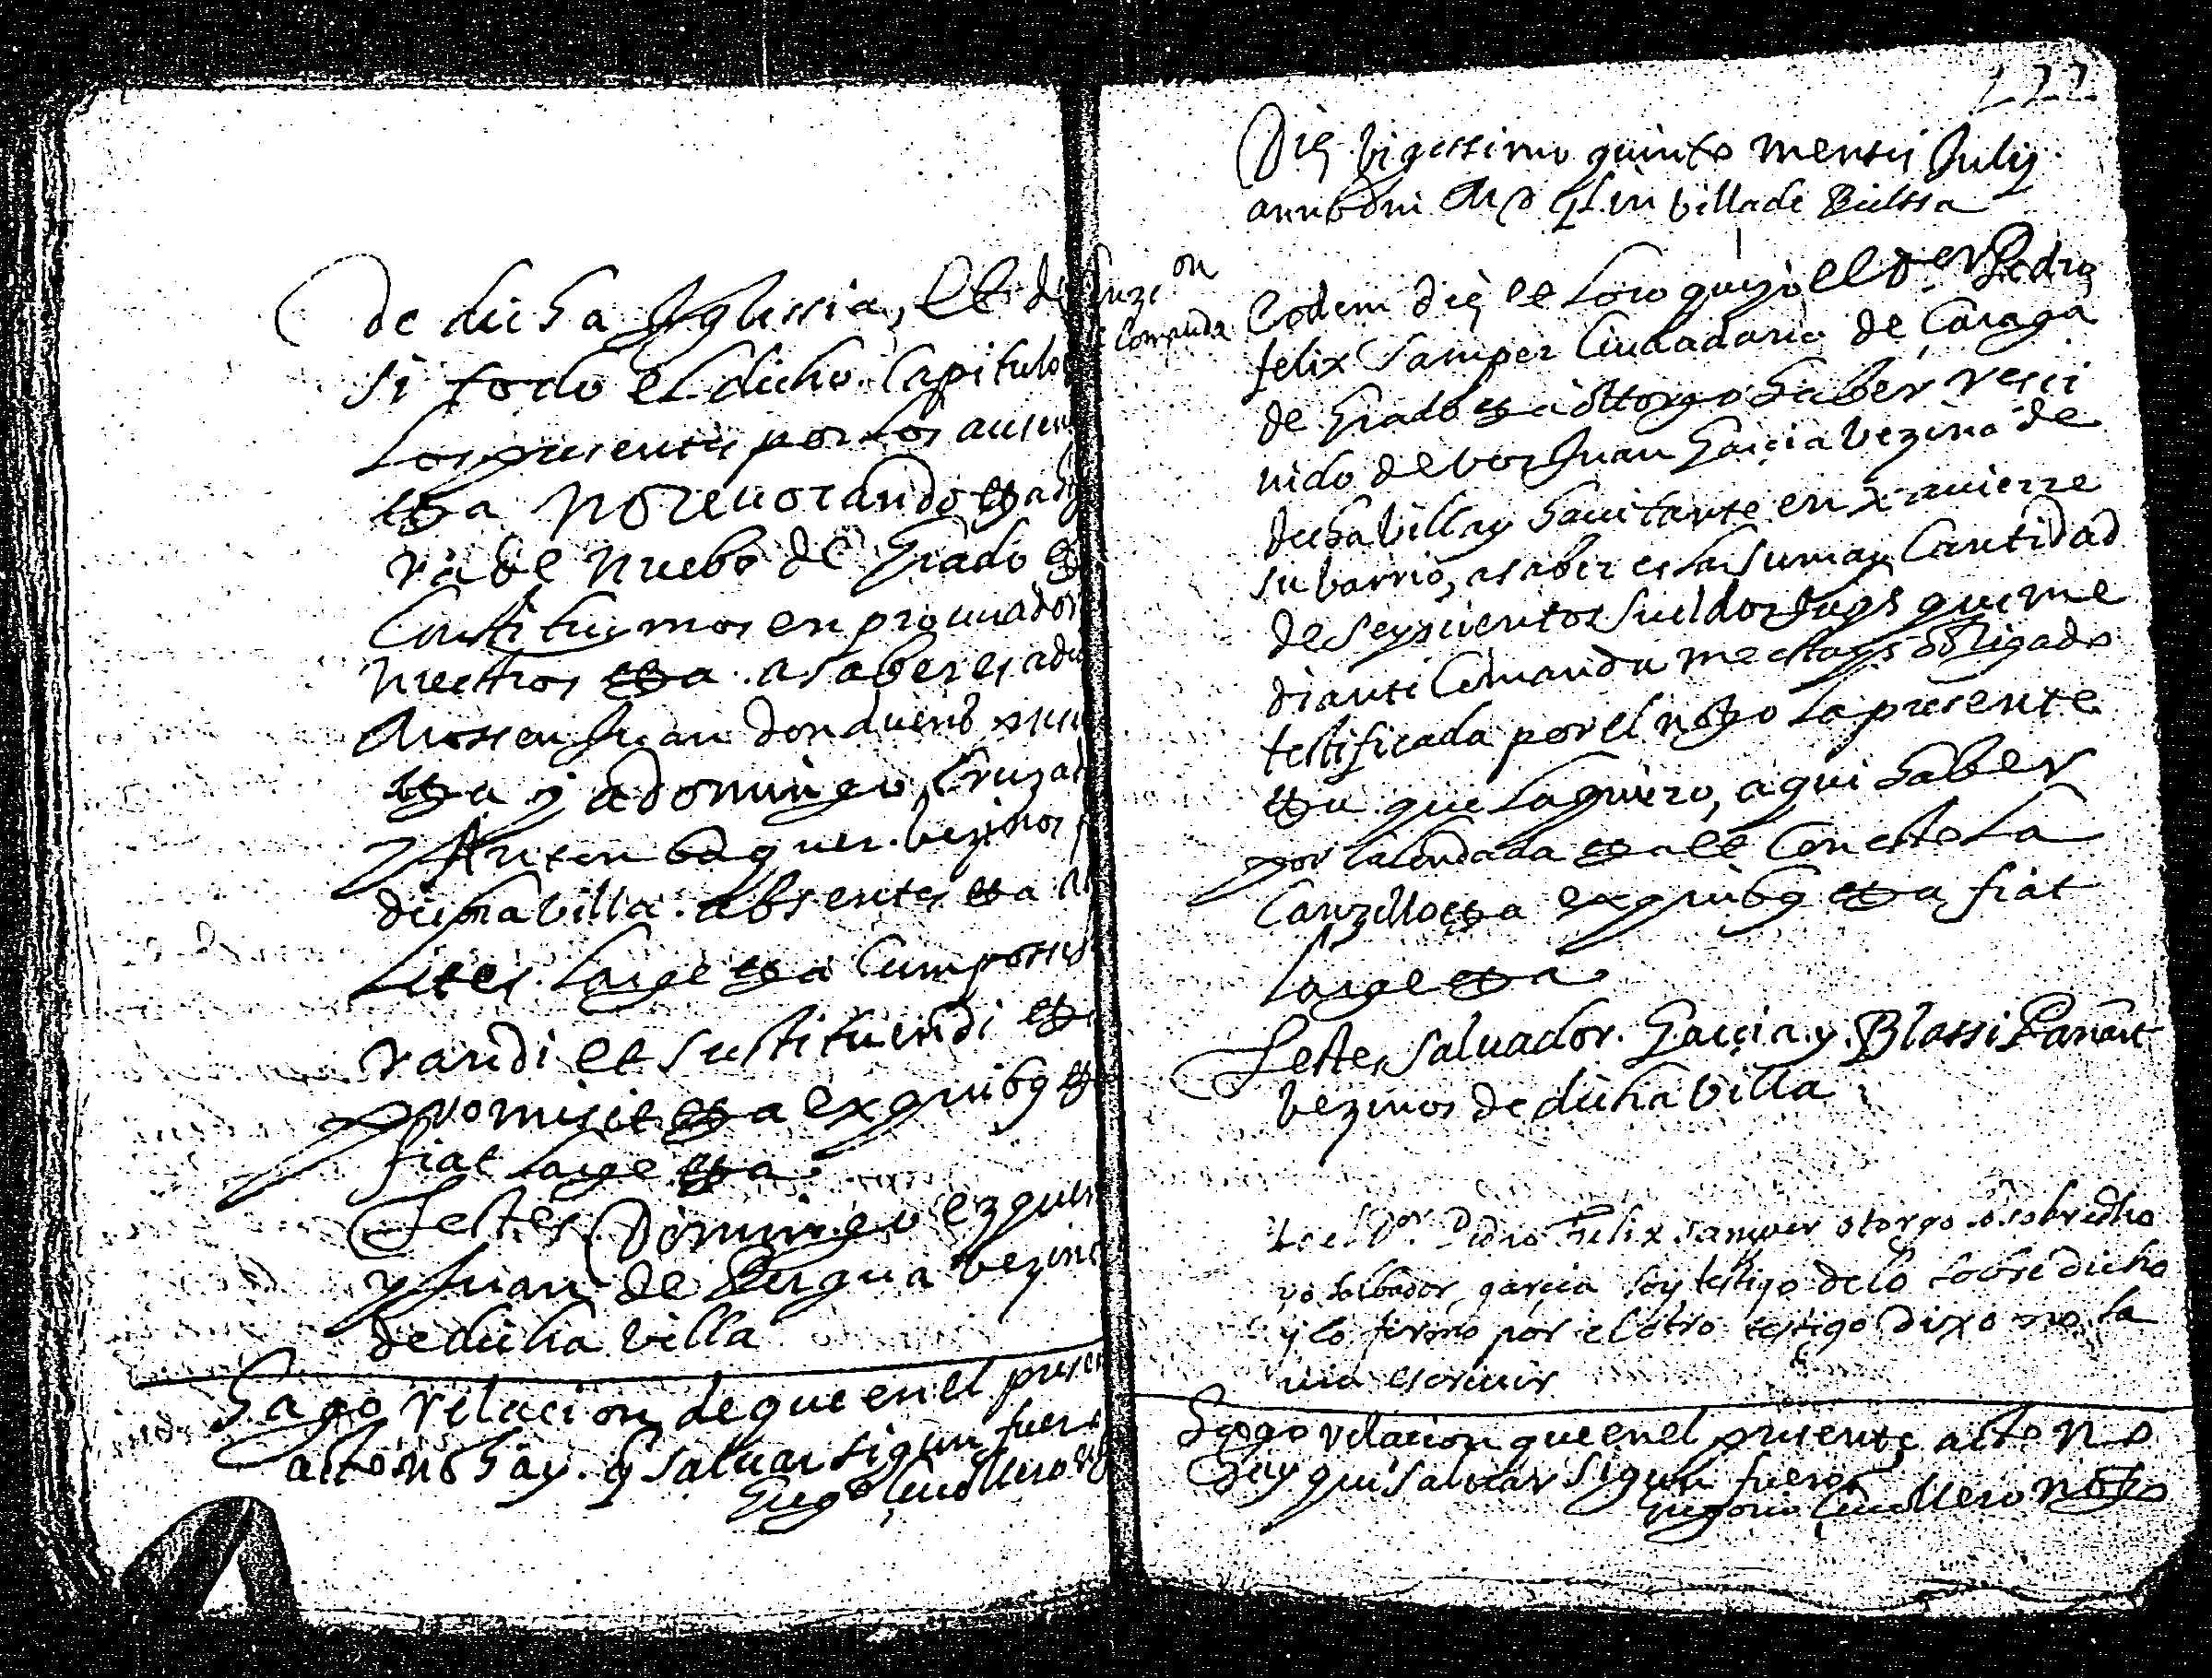 de dicha Iglessia, Et de
si todo el dicho Capitulo
los presentes por los ausen
etta no reuocando etta
ra de nuebo de Grado
Constituymos en procurador
nuestros etta. a saber es a
Mossen Juan
etta y a domingo Cruzat
y Anton baquer. bezinos
dicha billa. absentes etta
Lites. Large etta Cum posse
randi et sustituendi et
promisit etta ex quibus
fiat Large etta
Testes Domingo ezquer
y Juan de Bergua bezino
de dicha villa
Hago relacion de que en el presen
acto no hay. q saluar sigun fuero
Grego Cauallero
122
Die bigessimo quinto mensis Julij
anno dni in billa de Bielssa
Eodem die et loco que yo el Dor Pedro
felix Samper Ciudadano de Caraga
de Grado etta ottorgo haber resci
uido de vos Juan Garcia bezino de
dicha billa y hauitante en xauierre
su barrio, a saber es la suma y Cantidad
de seyscientos sueldos Jaqs que me
diante Comanda me estays obligado
testificada por el notto la presente
etta que la quiero, aqui haber
por Calendada etta et Con esto la
Canzello etta ex quibus etta fiat
Large etta
Testes Saluador. Garcia. y. Blassi
bezinos de dicha billa
Yo el Dor Pedro Felix samper otorgo lo sobredho
yo Salbador garcia soy testigo de lo sobredicho
y lo firmo por el otro testigo dixo no sa
uia escriuir
Hago relacion que en el presente acto no
hay que salbar sigun fuero
Gregorio Cauallero notto